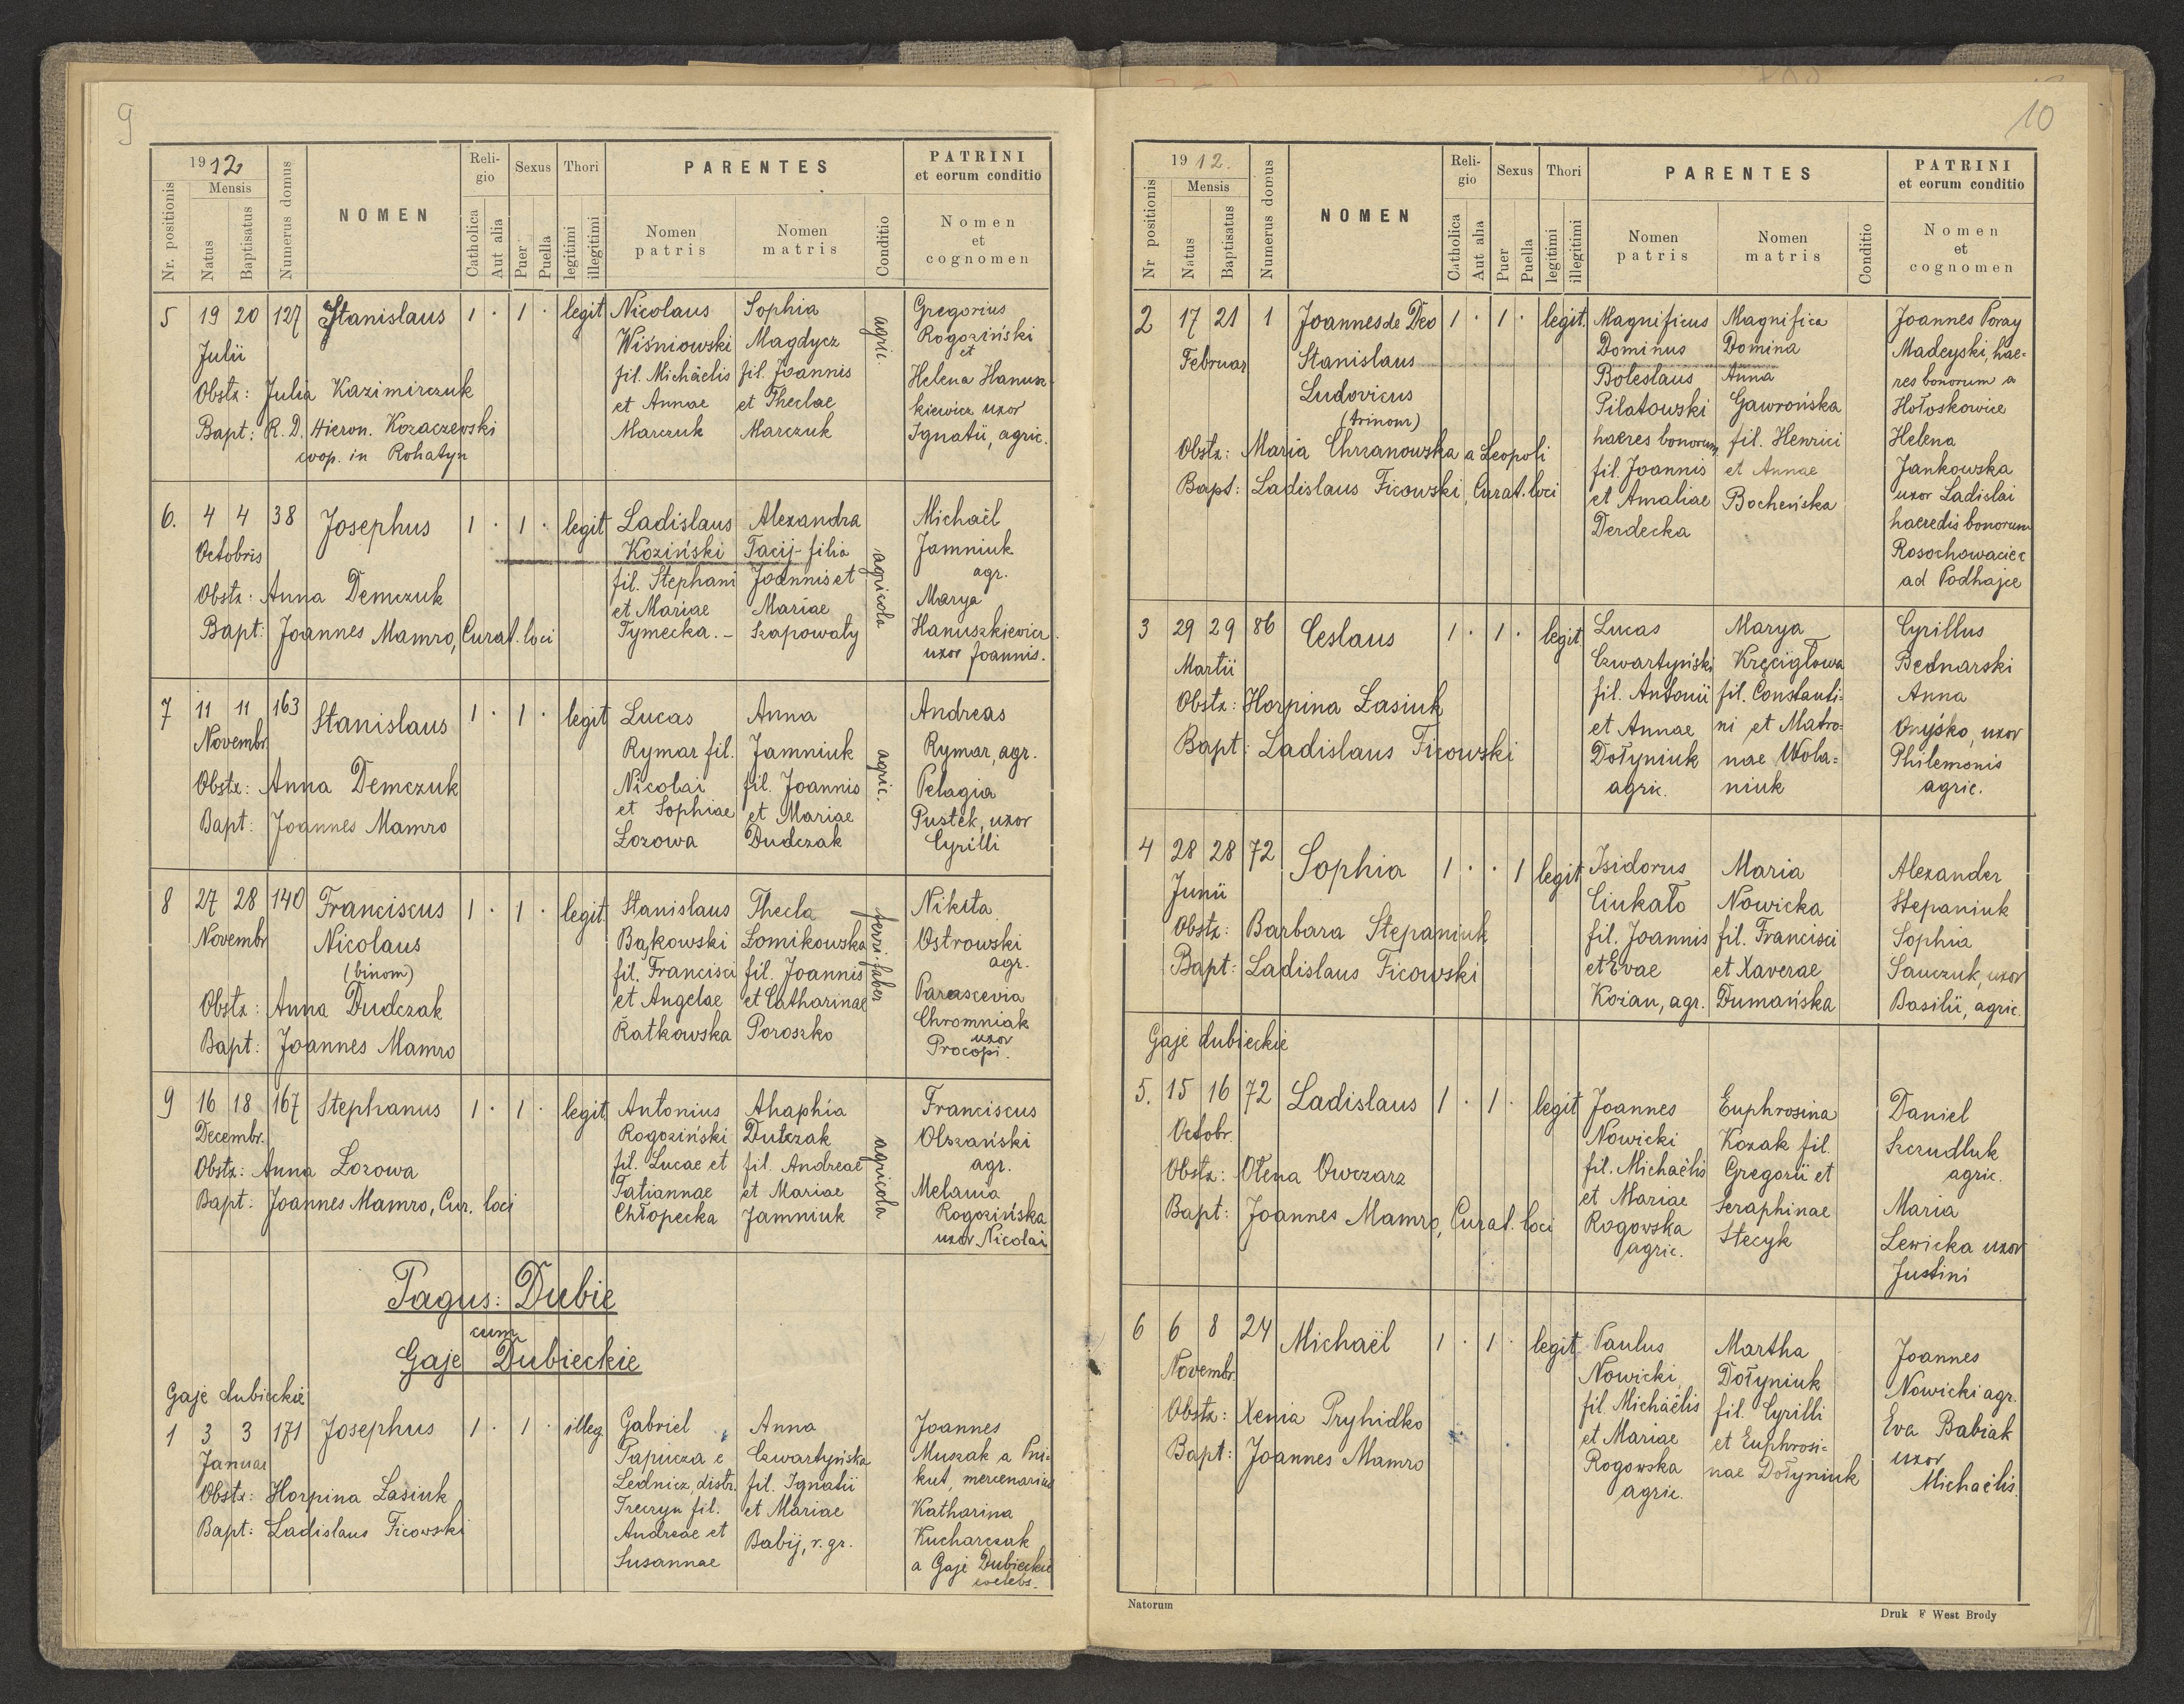 9
1912
Nr. positionis
Mensis
Natus
Baptisatus
Numerus domus
NOMEN
Religio
Catholica
Aut alia
Sexus
Puer
Puella
Thori
legitimi
illegitimi
PARENTES
Nomen patris
Nomen matris
Conditio
PATRINI
et eorum conditio
Nomen
et
cognomen
5 19 20 127 Stanislaus 1 · 1 · legit Nicolaus Sophia agric. Gregorius
Julii Wiśniowski Magdycz Rogoziński
et
fil. Michaëlis fil. Joannis Helena Hanusz-
Obstx: Julia Kazimirczuk et Annae et Theclae kiewicz uxor
Bapt: R. D. Hieron. Kozaczewski Marczuk Marczuk Ignatii, agric.
coop. in Rohatyn
6. 4 4 38 Josephus 1 · 1 · legit Ladislaus Alexandra agricola Michaël
Octobris Koziński Tacij- filia Jamniuk
agr.
fil. Stephani Joannis et
Obstx: Anna Demczuk et Mariae Mariae Marya
Bapt: Joannes Mamro, Curat. loci Tymecka. - Szapowaty Hanuszkiewicz
uxor Joannis.
7 11 11 163 Stanislaus 1 · 1 · legit Lucas Anna agric. Andreas
Novembr. Rymar fil. Jamniuk Rymar, agr.
Obstx: Anna Demczuk Nicolai fil. Joannis Pelagia
Bapt: Joannes Mamro et Sophiae et Mariae Pustek, uxor
Łozowa Dudczak Cyrilli
8 27 28 140 Franciscus 1 · 1 · legit. Stanislaus Thecla ferri-faber Nikita
Novembr Nicolaus Bąkowski Łomikowska Ostrowski
(binom) agr.
fil. Francisci fil. Joannis
Obstx: Anna Dudczak et Angelae et Catharinae Parascevia
Chromniak
Bapt: Joannes Mamro Ratkowska Poroszko uxor
Procopi.
9 16 18 167 Stephanus 1 · 1 · legit. Antonius Ahaphia agricola Franciscus
Decembr. Rogoziński Dutczak Olszański
Obstx: Anna Łozowa fil. Lucae et fil. Andreae agr.
Bapt: Joannes Mamro, Cur. loci Tatiannae et Mariae Melania
Chłopecka Jamniuk Rogozińska
uxor Nicolai
Pagus: Dubie
cum
Gaje Dubieckie
Gaje dubieckie
1 3 3 171 Josephus 1 · 1 · illeg. Gabriel Anna Joannes
Januar Papucza e Czwartyńska Muszak a Pni-
Lednicz, distr. fil. Ignatii kut, mercenarius
Obstx: Horpina Łasiuk Treczyn fil. et Mariae Katharina
Bapt: Ladislaus Ficowski Andreae et Babij, r. gr. Kucharczuk
Susannae a Gaje Dubieckie
coelebs.
10
1912.
Nr positionis
Mensis
Natus
Baptisatus
Numerus domus
NOMEN
Religio
Catholica
Aut alia
Sexus
Puer
Puella
Thori
legitimi
illegitimi
PARENTES
Nomen patris
Nomen matris
Conditio
PATRINI
et eorum conditio
Nomen
et
cognomen
2 17 21 1 Joannes de Deo 1 · 1 · legit. Magnificus Magnifica Joannes Poray
Februar Stanislaus Dominus Domina Madeyski, hae-
Ludovicus Boleslaus Anna res bonorum a
(trinom) Pilatowski Gawrońska Hołoskowice
Obstx: Maria Chrzanowska a Leopoli haeres bonorum, fil. Henrici Helena
Bapt: Ladislaus Ficowski, Curat. loci fil. Joannis et Annae Jankowska
et Amaliae Bocheńska uxor Ladislai
Derdecka haeredis bonorum
Rosochowaciec
ad Podhajce
3 29 29 86 Ceslaus 1 · 1 · legit Lucas Marya Cyrillus
Martii Czwartyński Kręcigłowa Bednarski
Obstx: Horpina Łasiuk fil. Antonii fil. Constanti- Anna
Bapt: Ladislaus Ficowski et Annae ni et Matro- Onyśko, uxor
Dołyniuk nae Wola- Philemonis
agric. niuk agric.
4 28 28 72 Sophia 1 · · 1 legit Isidorus Maria Alexander
Junii Ciukało Nowicka Stepaniuk
Obstx: Barbara Stepaniuk fil. Joannis fil. Francisci Sophia
Bapt: Ladislaus Ficowski et Evae et Xaverae Sauczuk, uxor
Kozan, agr. Dumańska Basilii, agric.
Gaje dubieckie
5. 15 16 72 Ladislaus 1 · 1 · legit Joannes Euphrosina Daniel
Octobr. Nowicki Kozak fil. Szczudluk
Obstx: Ołena Owczarz fil. Michaëlis Gregorii et agric.
Bapt: Joannes Mamro, Curat. loci et Mariae Seraphinae Maria
Rogowska Stecyk Lewicka uxor
agric. Justini
6 6 8 24 Michaël 1 · 1 · legit. Paulus Martha Joannes
Novembr. Nowicki Dołyniuk Nowicki agr.
Obstx: Xenia Pryhidko fil. Michaëlis fil. Cyrilli Eva Babiak
Bapt: Joannes Mamro et Mariae et Euphrosi- uxor
Rogowska nae Dołyniuk Michaëlis.
agric.
Natorum
Druk F West Brody